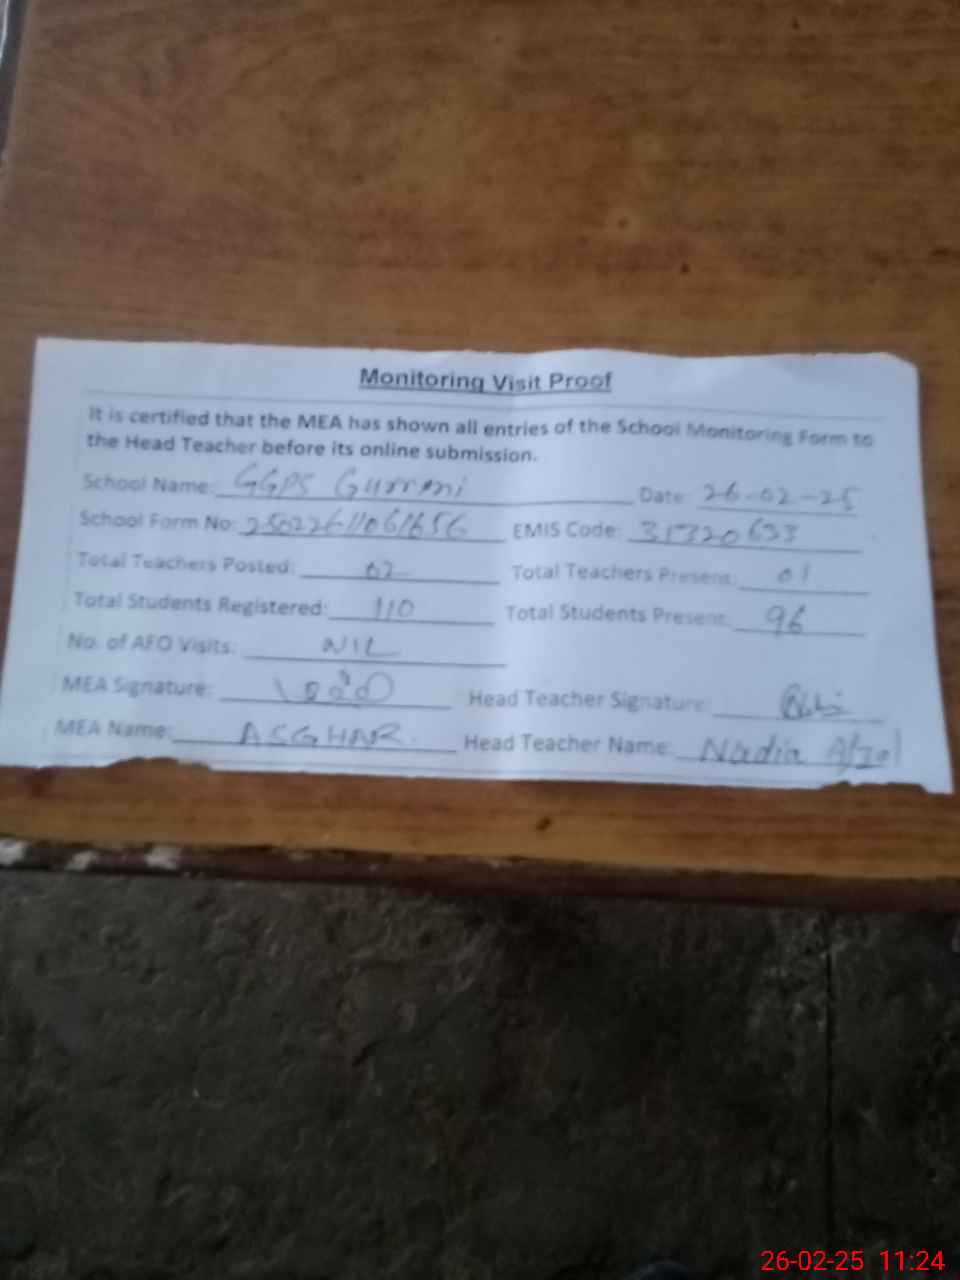 Monitoring Visit Proof
It is certified that the MEA has shown all entries of the School Monitoring Form to
the Head Teacher before its online submission.
School Name: GGPS Gurmani Date: 26-02-25
School Form No: EMIS Code: 31320633
Total Teachers Posted: 02 Total Teachers Present: 01
Total Students Registered: 110 Total Students Present: 96
No. of AFO Visits: NIL
MEA Signature: Head Teacher Signature:
MEA Name: ASGHAR. Head Teacher Name: Nadia Afzal
26-02-25 11:24